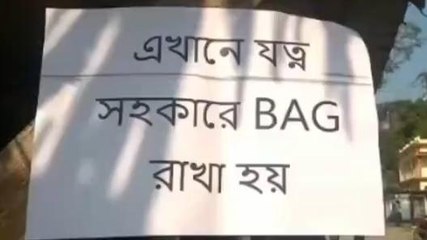 এখানে যত্ন
সহকারে BAG
রাখা হয়